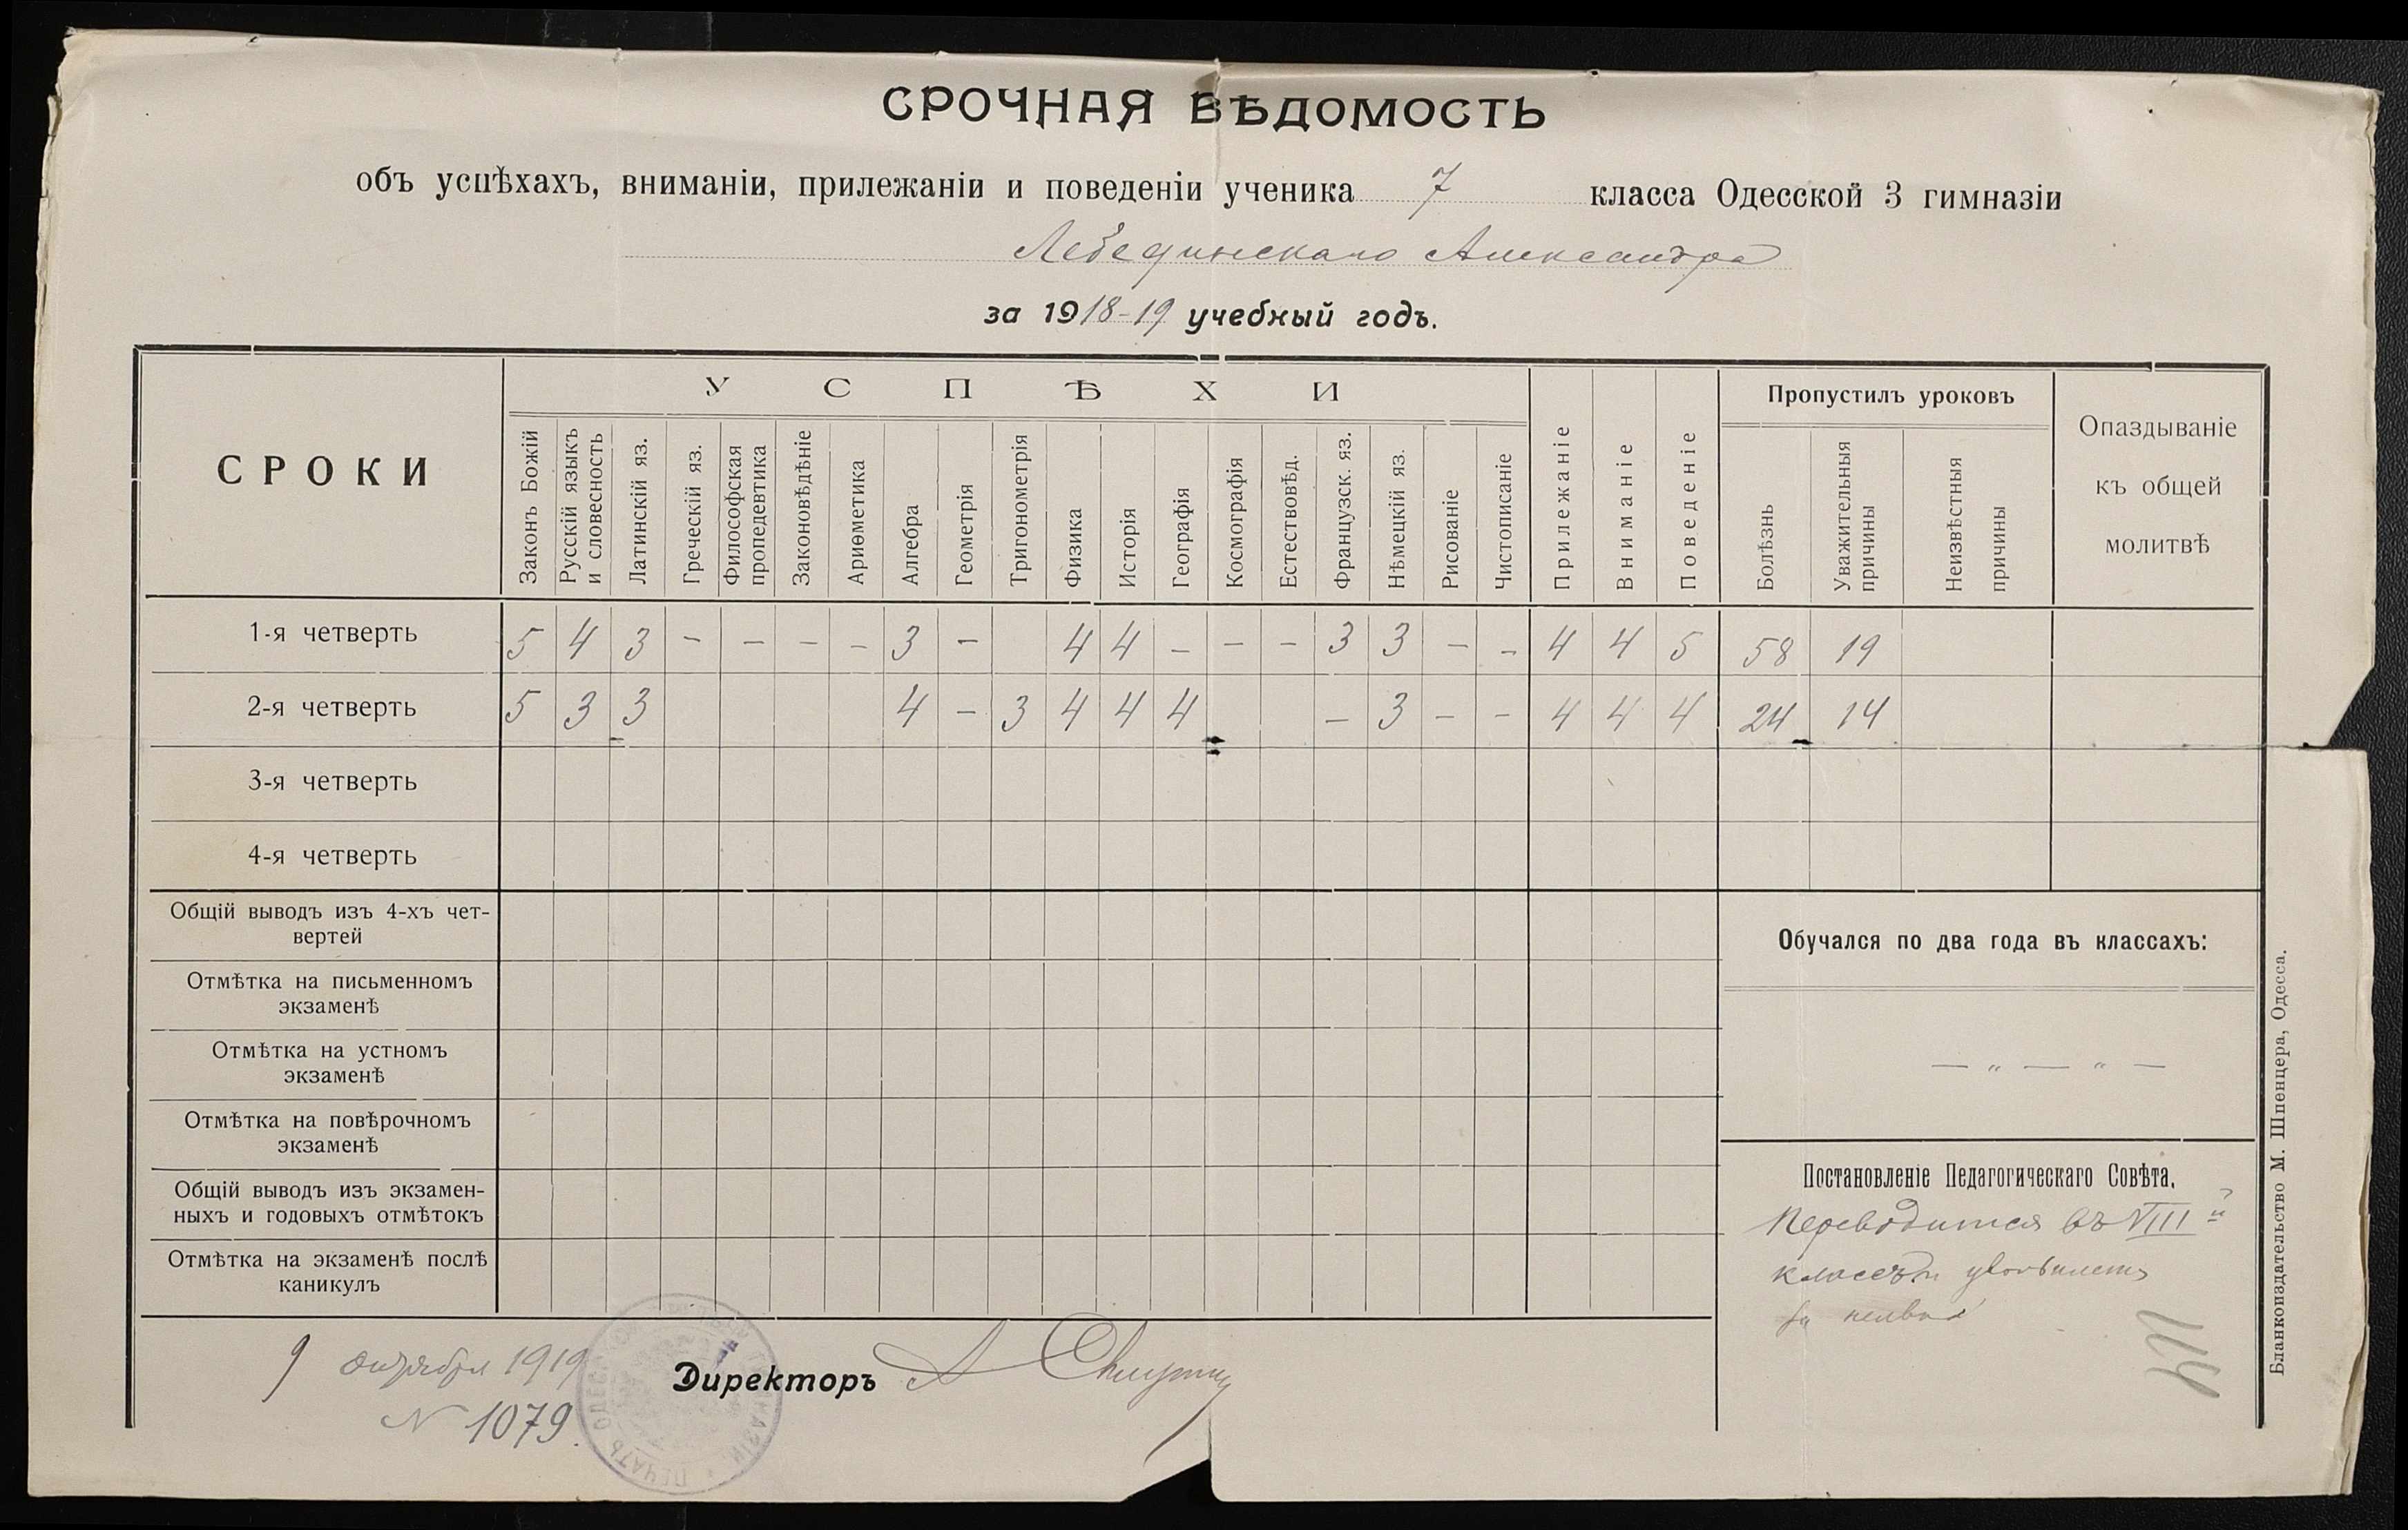 СРОЧНАЯ ВѢДОМОСТЬ
объ успѣхахъ, вниманіи, прилежаніи и поведеніи ученика 7 класса Одесской 3 гимназіи
Лебединскаго Александра
за 1918-19 учебный годъ.
СРОКИ
УСПѢХИ
Законъ Божій
Русскій языкъ и словесность
Латинскій яз.
Греческій яз.
Философская пропедевтика
Законовѣдѣніе
Ариѳметика
Алгебра
Геометрія
Тригонометрія
Физика
Исторія
Географія
Космографія
Естествовѣд.
Французск. яз.
Нѣмецкій яз.
Рисованіе
Чистописаніе
Прилежаніе
Вниманіе
Поведеніе
Пропустилъ уроковъ
Болѣзнь
Уважительныя причины
Неизвѣстныя причины
Опаздываніе
къ общей
молитвѣ
1-я четверть 5 4 3 - - - - 3 - 4 4 - - - 3 3 - - 4 4 5 58 19
2-я четверть 5 3 3 4 - 3 4 4 4 - 3 - - 4 4 4 24 14
3-я четверть
4-я четверть
Общій выводъ изъ 4-хъ чет-
вертей
Отмѣтка на письменномъ
экзаменѣ
Отмѣтка на устномъ
экзаменѣ
Отмѣтка на повѣрочномъ
экзаменѣ
Общій выводъ изъ экзамен-
ныхъ и годовыхъ отмѣтокъ
Отмѣтка на экзаменѣ послѣ
каникулъ
Обучался по два года въ классахъ:
— „ — „ —
Постановленіе Педагогическаго Совѣта.
Переводится въ VIII й
классъ
9 октября 1919
N 1079.
Директоръ
Бланкоиздательство М. Шпенцера, Одесса.